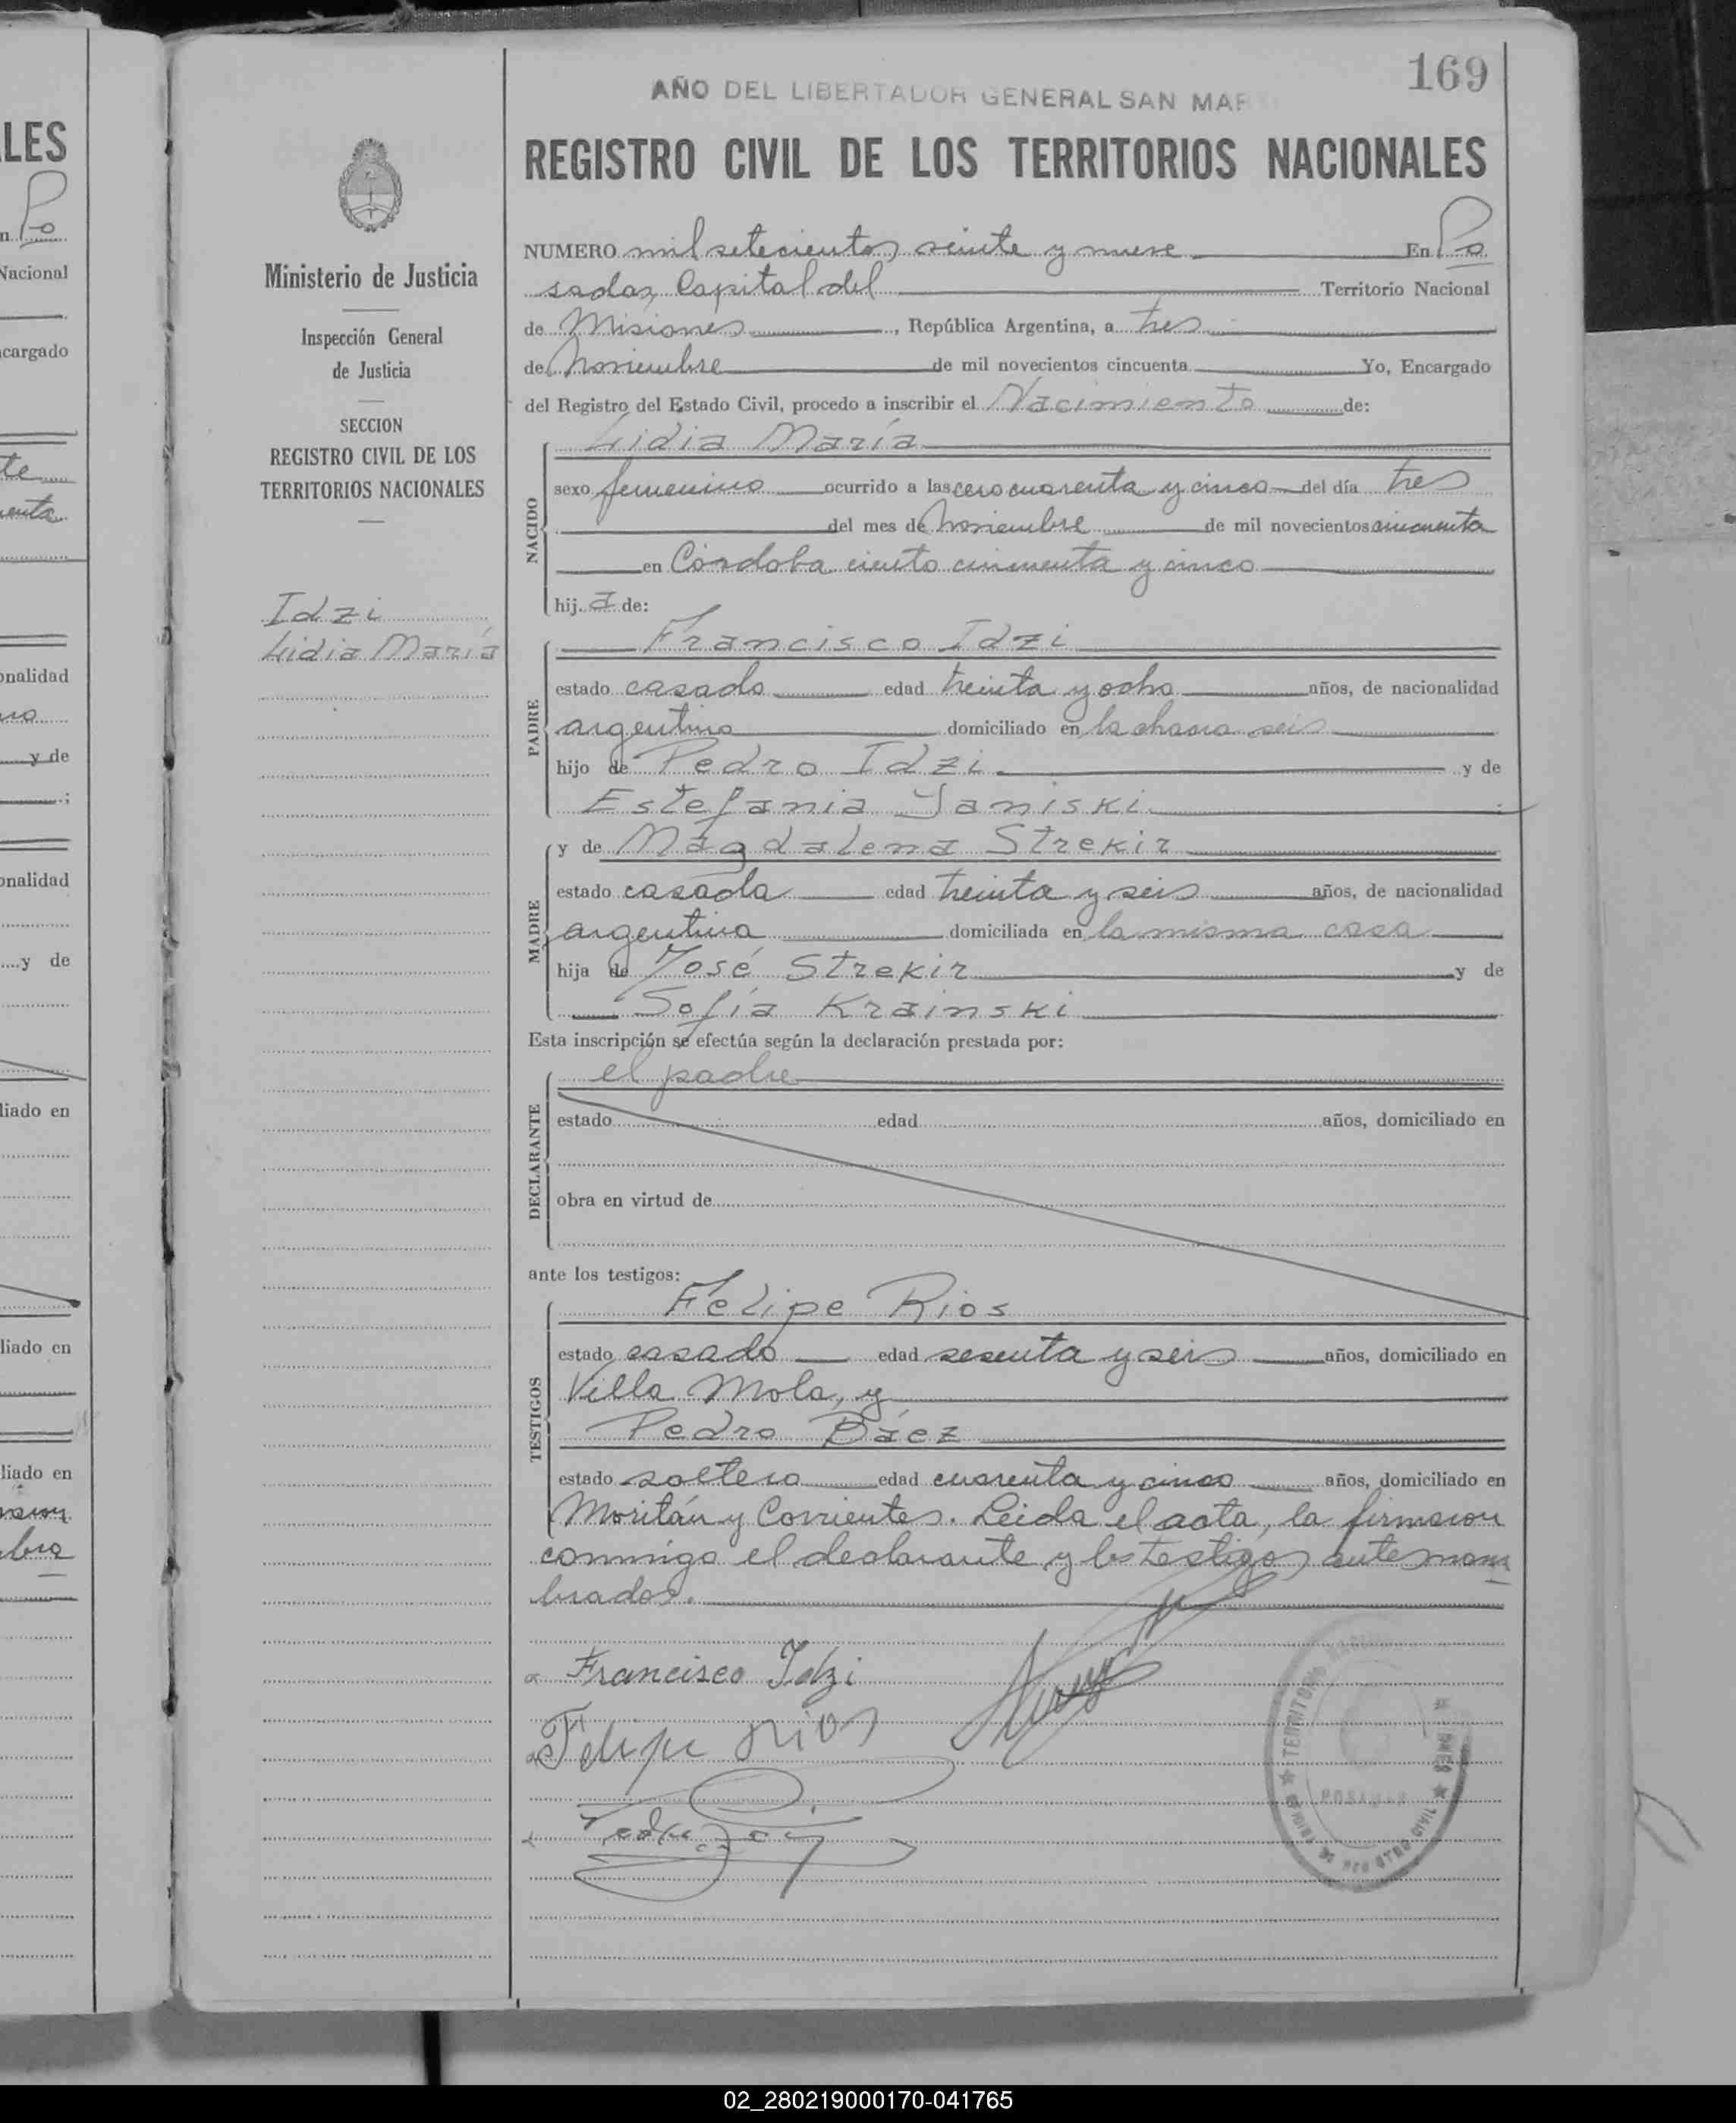 169
AÑO DEL LIBERTADOR GENERAL SAN MAR
REGISTRO CIVIL DE LOS TERRITORIOS NACIONALES
Ministerio de Justicia
Inspección General
de Justicia
SECCION
REGISTRO CIVIL DE LOS
TERRITORIOS NACIONALES
Idzi
Lidia María
NUMERO mil setecientos veinte y nueve En Po
sadas, Capital del Territorio Nacional
de Misiones, República Argentina, a tres
de Noviembre de mil novecientos cincuenta Yo, Encargado
del Registro del Estado Civil, procedo a inscribir el Nacimiento de:
NACIDO
Lidia María
sexo femenino ocurrido a las cero cuarenta y cinco del día tres
del mes de Noviembre de mil novecientos cincuenta
en Córdoba ciento cincuenta y cinco
hij a de:
PADRE
Francisco Idzi
estado casado edad treinta y ocho años, de nacionalidad
argentino domiciliado en la chacra seis
hijo de Pedro Idzi y de
Estefania Yaniski ;
MADRE
y de Magdalena Strekir
estado casada edad treinta y seis años, de nacionalidad
argentina domiciliada en la misma casa
hija de José Strekir y de
Sofía Krainski
Esta inscripción se efectúa según la declaración prestada por:
DECLARANTE
el padre
estado edad años, domiciliado en
obra en virtud de
ante los testigos:
TESTIGOS
Felipe Rios
estado casado edad sesenta y seis años, domiciliado en
Villa Mola, y
Pedro Báez
estado soltero edad cuarenta y cinco años, domiciliado en
Moritán y Corrientes. Leida el acta, la firmaron
conmigo el declarante y los testigos antes nom
brados.
Francisco Idzi
Felipe Rios
TERRITORIO
POSADAS
LES
Po
Nacional
cargado
onalidad
y de
onalidad
y de
liado en
liado en
liado en
02_280219000170-041765